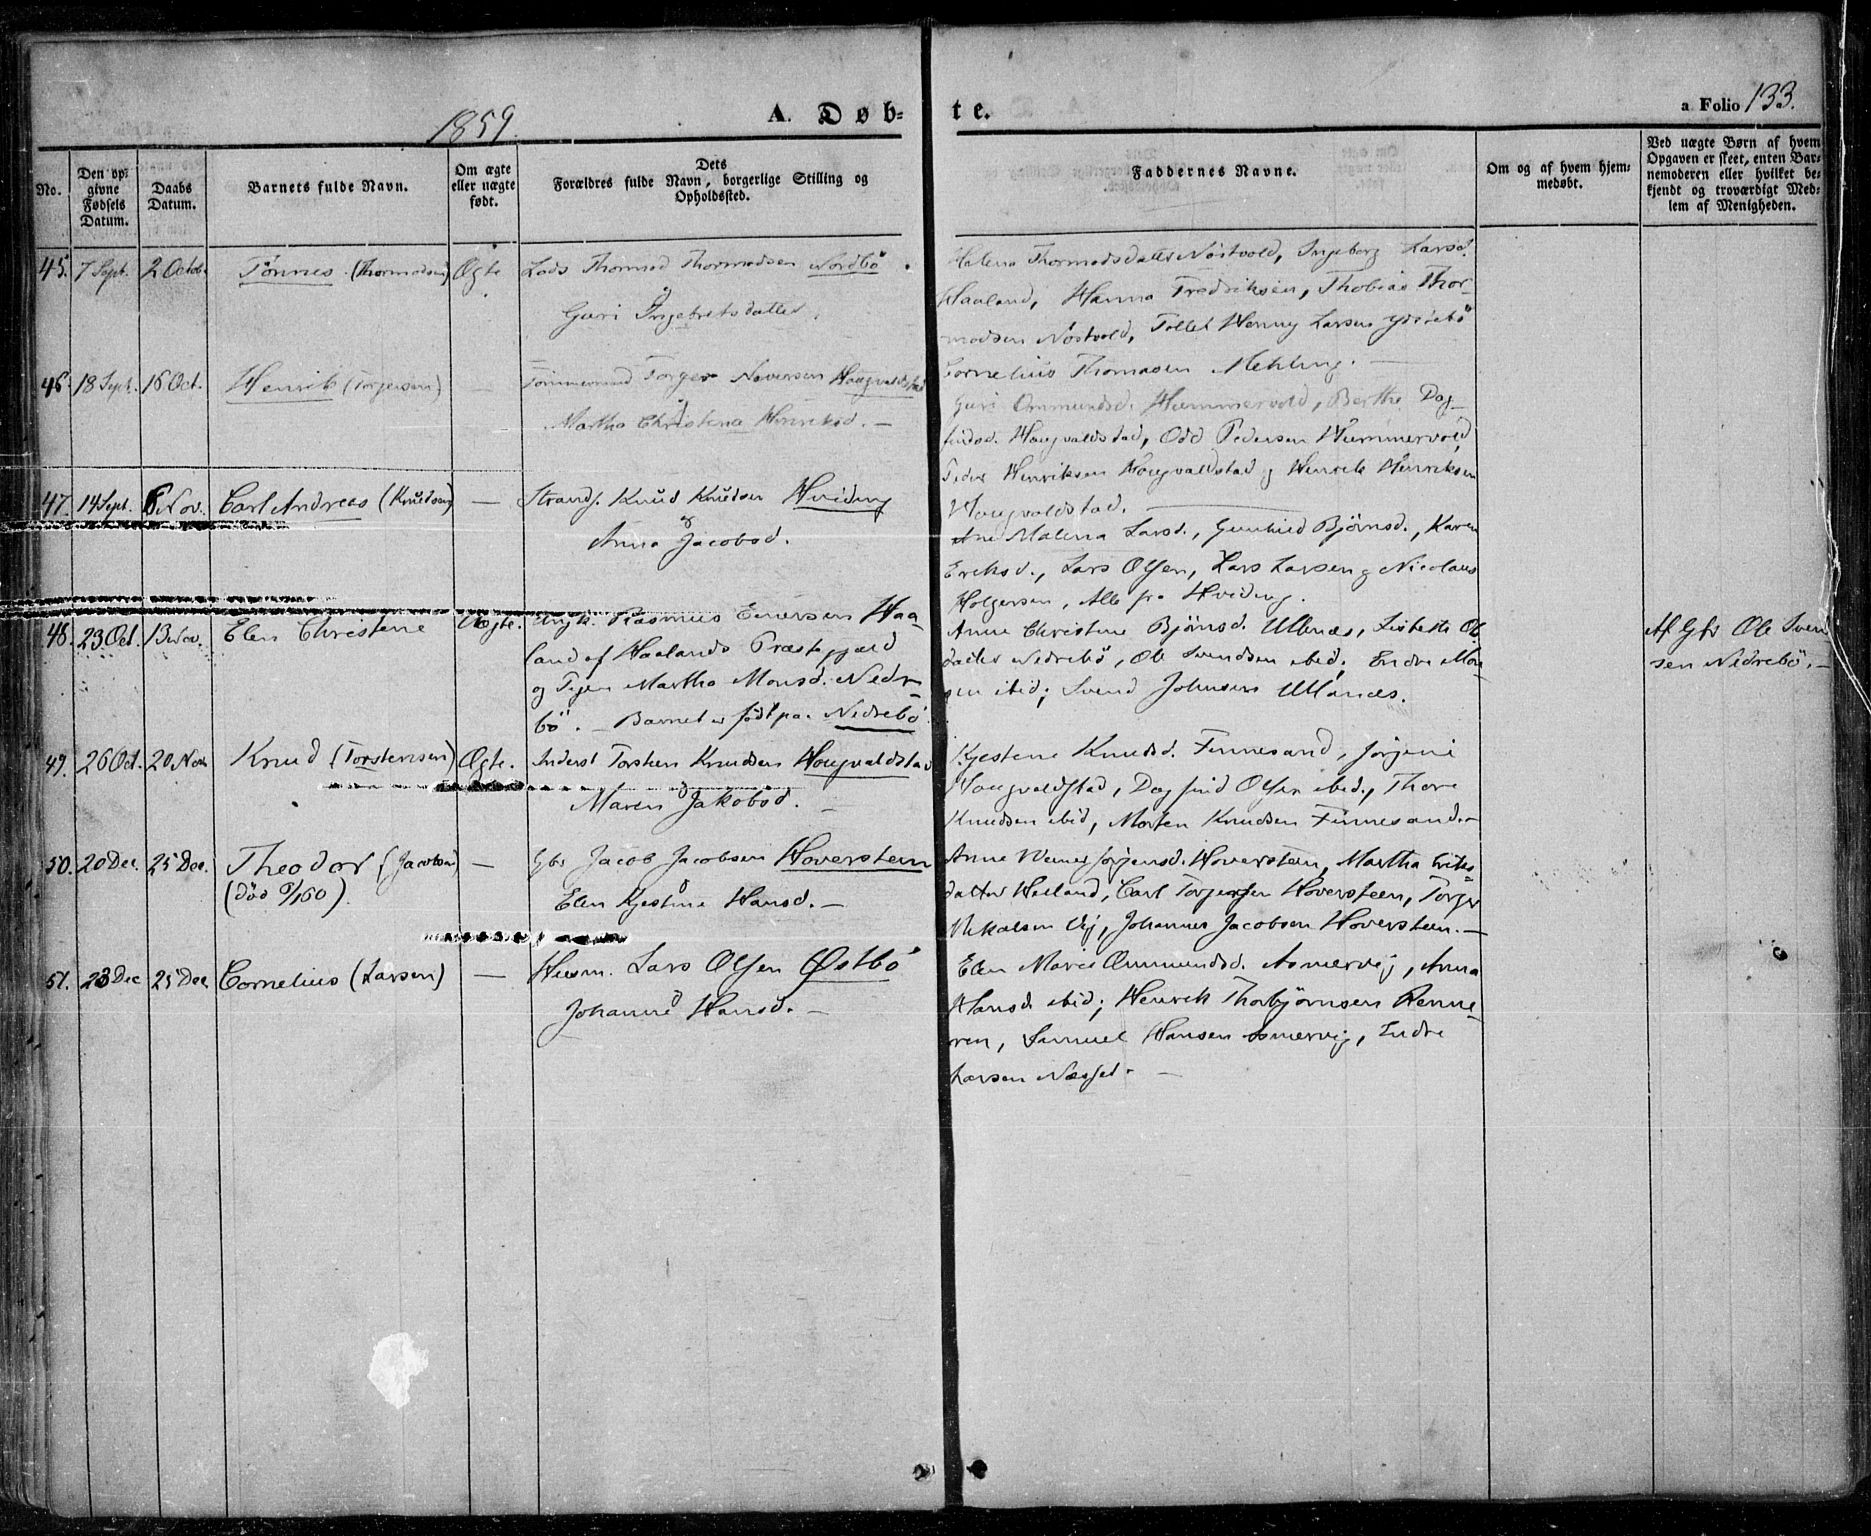 1859.
A. Døb-
te.
a Folio 133.
No.
Den op-
givne
Fødsels
Datum.
Daabs
Datum.
Barnets fulde Navn.
Om ægte
eller uægte
født.
Dets
Forældres fulde Navn, borgerlige Stilling og
Opholdssted.
Faddernes Navne.
Om og af hvem hjem-
medøbt.
Ved uægte Børn af hvem
Opgaven er skeet, enten Bar-
nemoderen eller hvilket be-
kjendt og troværdigt Med-
lem af Menigheden.
45. 7 Sept. 2 Octob. Tönnes (Thormodsen) Ægte Lods Thormod Thormodsen Nordbö
Guri Ingebretsdatter.
Helena Thormodsdatter Nöstvold, Ingeborg Larsd.
Haaland, Hanna Fredriksen, Thobias Thor-
modsen Nöstvold, Tollef Henny Larsen
Cornelius Thomasen Mehling.
46. 18 Sept. 16 Oct. Henrik (Torgersen) — Tömmermand Torger Hougvaldstad
Martha Christena Henriksd. —
Guri Ommundsd. Hummervold, Berthe Dag-
findsd. Hougvaldstad, Odd Pedersen Hummervold,
Peder Henriksen Hougvaldstad og Henrik Henriksen
Hougvaldstad.
47. 14 Sept. 6 Nov. Carl Andreas (Knudsen) — Strands. Knud Knudsen Hviding
& Anna Jacobsd.
Ane Malena Larsd., Gunhild Björnsd., Karen
Eriksd., Lars Olsen, Lars Larsen og Nicolaus
Holgersen, Alle fra Hviding.
48. 23 Oct. 13 Nov. Elen Christene Uægte. Ungk. Rasmus Enersen Haa-
land af Haalands Præstegjeld
og Pigen Martha Monsd. Nedre-
bö. — Barnet er födt paa Nedrebö
Anne Christine Björnsd. Ullenes, Lisbeth Ols-
datter Nedrebö, Ole Svendsen ibid; Endre Mon-
sen ibid; Svend Johnsen Ullenæs.
Af Gbr Ole Sven-
sen Nedrebö. —
49. 26 Oct. 20 Nov. Knud (Torstensen) Ægte. Inderst Torsten Knudsen Hougvaldstad
& Maren Jakobsd. —
Kjestene Knudsd. Finnesand, Jörgine
Hougvaldstad, Dagfind Olsen ibid., Thore
Knudsen ibid, Morten Knudsen Finnesand. —
50. 20 Dec. 25 Dec. Theodor (Jacobsen) — Gbr Jacob Jacobsen Hoversteen
(död 9/1 60).
& Elen Kjestine Hansd. —
Anne Jörgensd. Hoversteen, Martha Eriks-
datter Heiland, Carl Torgersen Hoversteen, Torger
Mikalsen Vij, Johannes Jacobsen Hoversteen. —
51. 23 Dec 25 Dec Cornelius (Larsen) — Husm. Lars Olsen Östbö
& Johanne Hansd. —
Elen Marie Ommundsd. Asmervig, Anna
Hansd. ibid; Henrik Thorbjörnsen Renne-
ren, Samuel Hansen Asmervig, Endre
Larsen Næsset. —